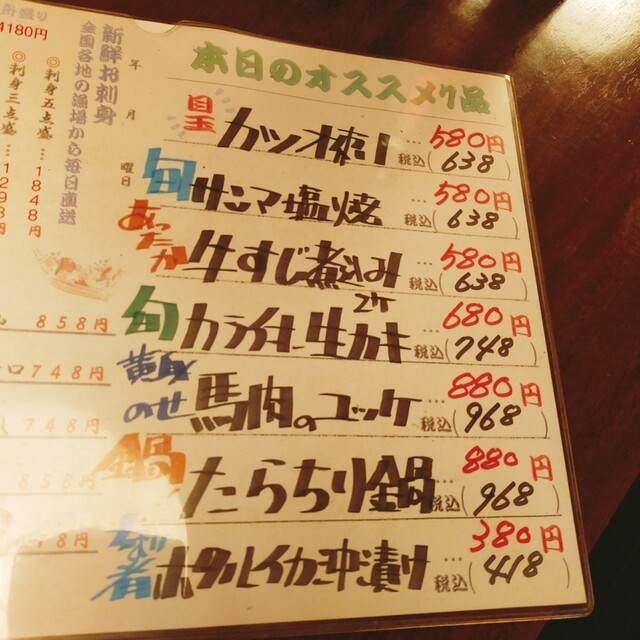 本日のオススメ品
目玉 カツオ刺し … 580円
税込(638)
旬 サンマ塩焼 … 580円
税込(638)
あったか 牛すじ煮込み … 580円
税込(638)
旬 カライキ生カキ 2ケ … 680円
税込(748)
黄身のせ 馬肉のユッケ … 880円
税込(968)
鍋 たらちり鍋 … 880円
税込(968)
ホタルイカ沖漬け … 380円
税込(418)
年 月 曜日
新鮮お刺身
全国各地の漁場から毎日直送
◎刺身五点盛…1848円
◎刺身三点盛…1298円
舟盛り
4180円
858円
748円
748円
858円